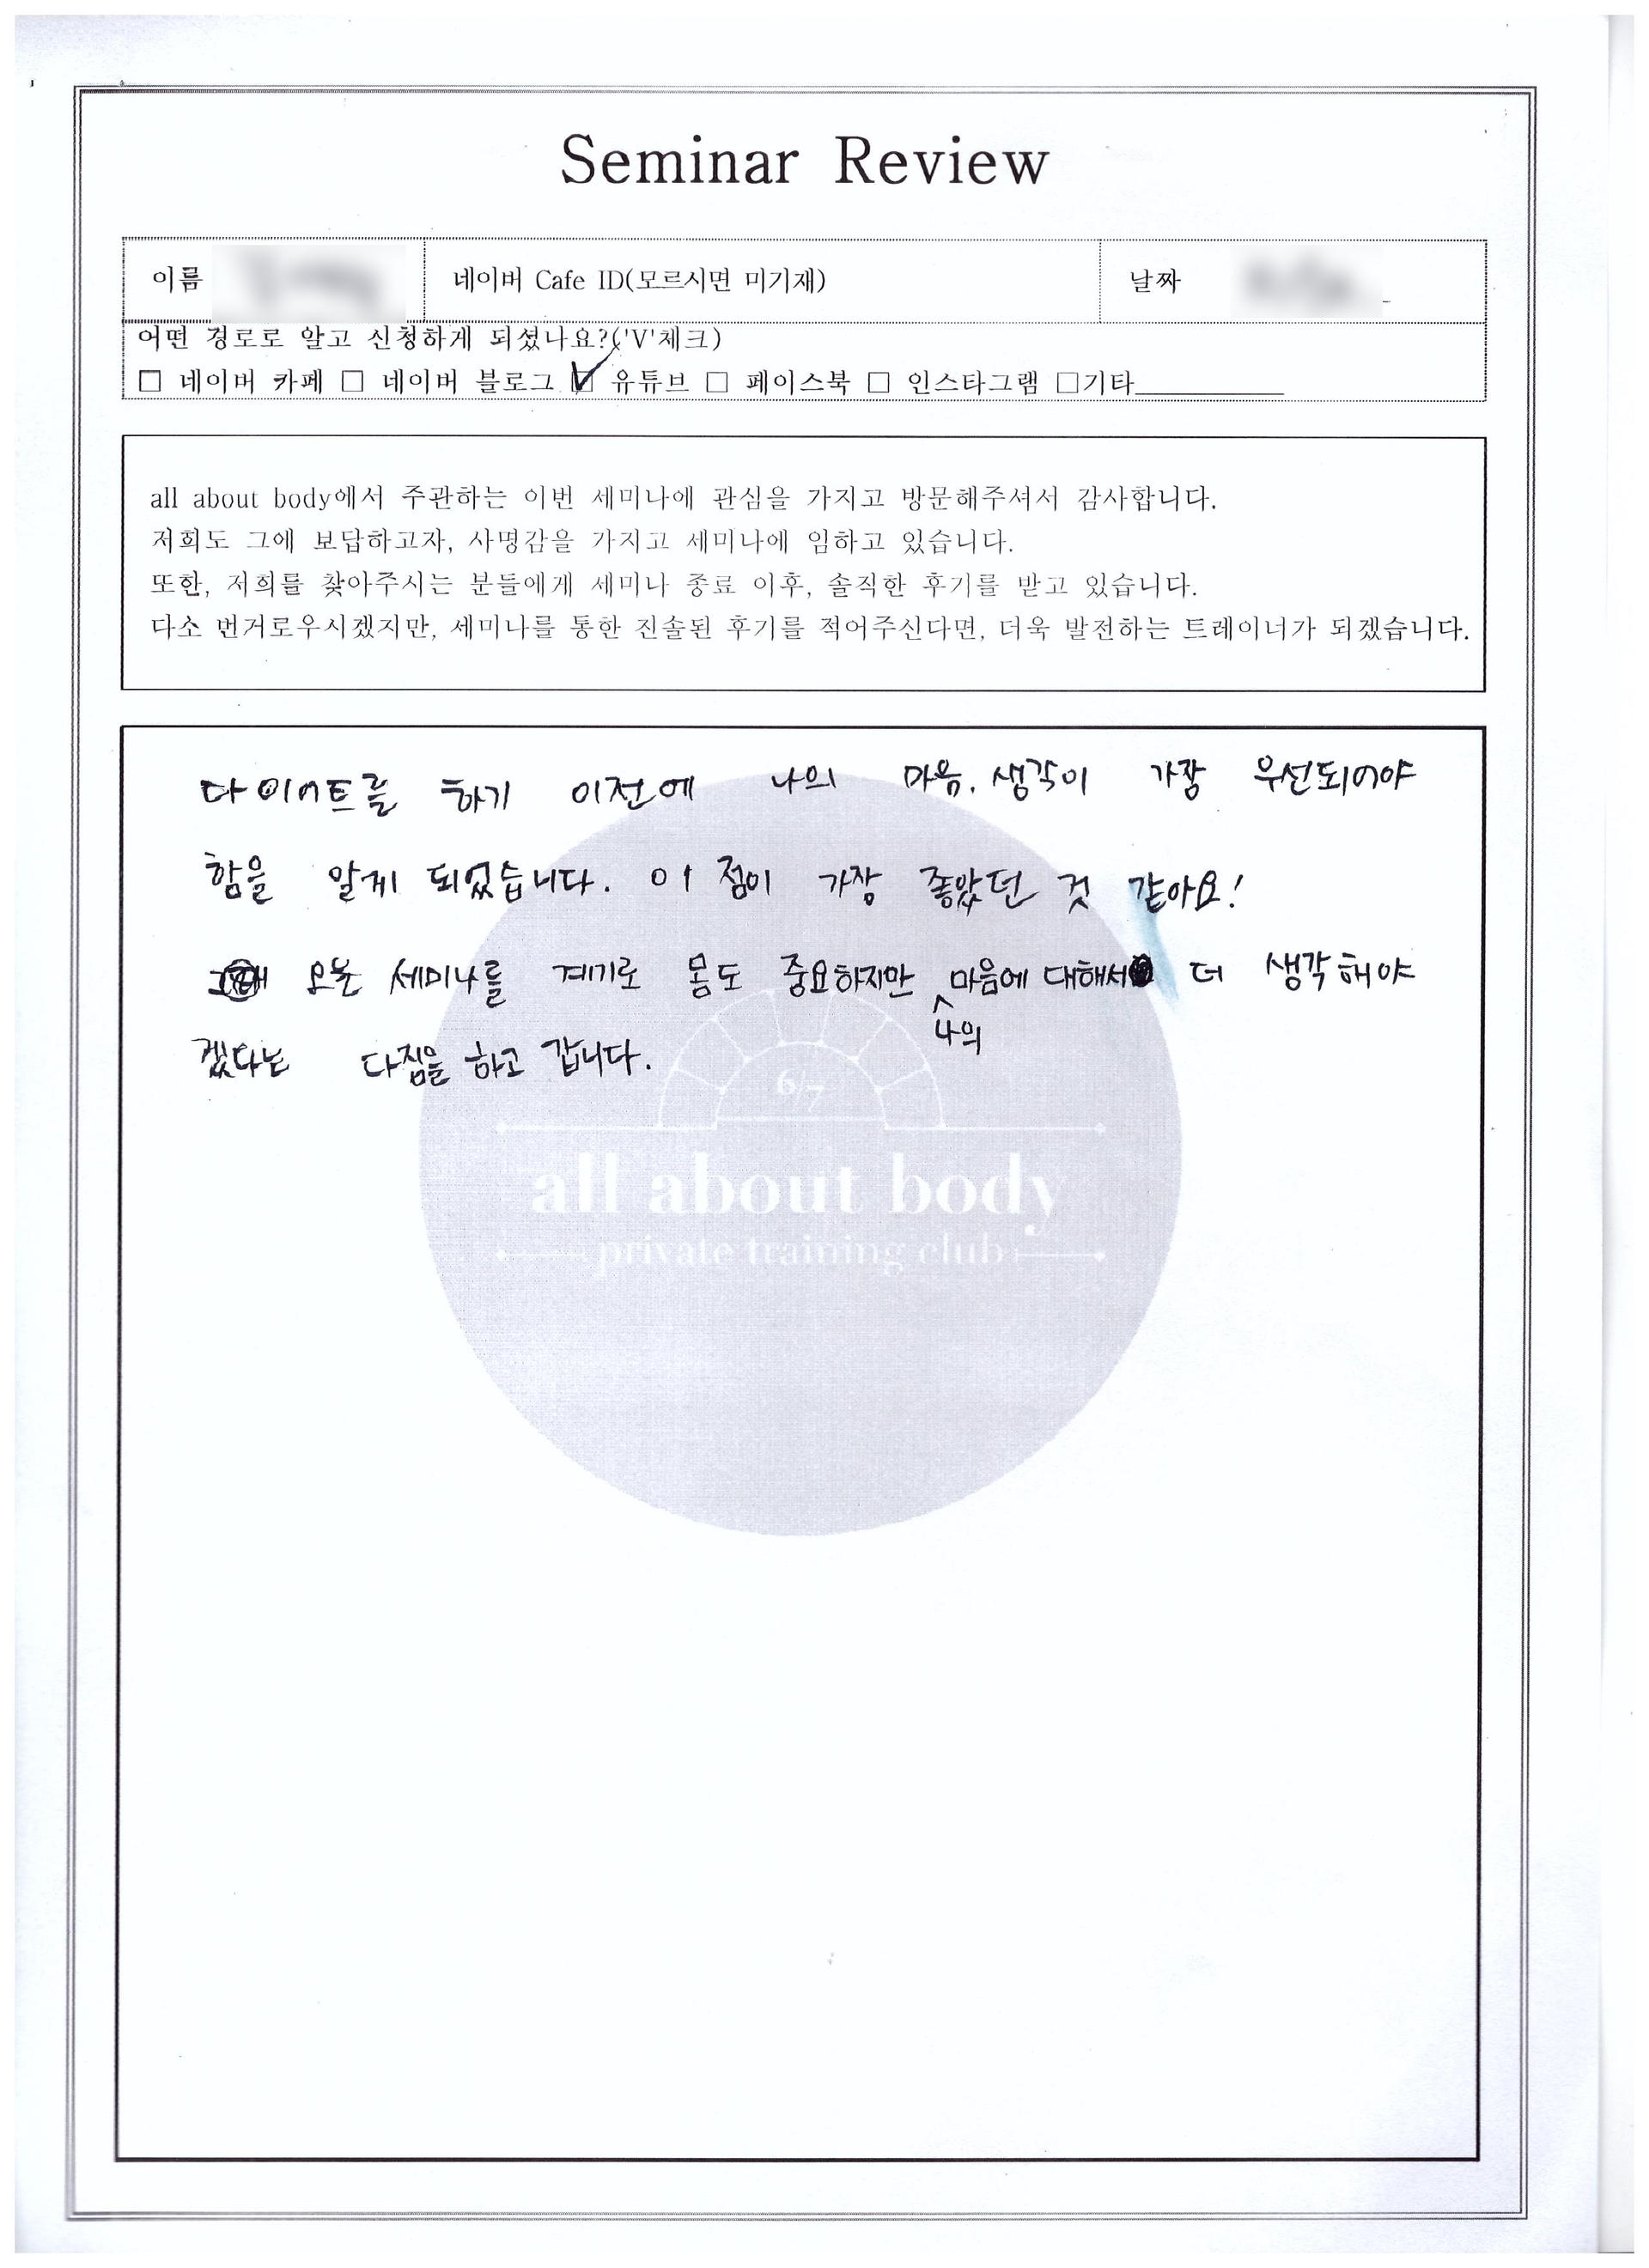 Seminar Review
이름
네이버 Cafe ID(모르시면 미기재)
날짜
어떤 경로로 알고 신청하게 되셨나요?('V'체크)
□ 네이버 카페 □ 네이버 블로그 ☑ 유튜브 □ 페이스북 □ 인스타그램 □기타
all about body에서 주관하는 이번 세미나에 관심을 가지고 방문해주셔서 감사합니다.
저희도 그에 보답하고자, 사명감을 가지고 세미나에 임하고 있습니다.
또한, 저희를 찾아주시는 분들에게 세미나 종료 이후, 솔직한 후기를 받고 있습니다.
다소 번거로우시겠지만, 세미나를 통한 진솔된 후기를 적어주신다면, 더욱 발전하는 트레이너가 되겠습니다.
다이어트를 하기 이전에 나의 마음, 생각이 가장 우선되어야
함을 알게 되었습니다. 이 점이 가장 좋았던 것 같아요!
오늘 세미나를 계기로 몸도 중요하지만 나의 마음에 대해서 더 생각해야
겠다는 다짐을 하고 갑니다.
6/7
all about body
private training club